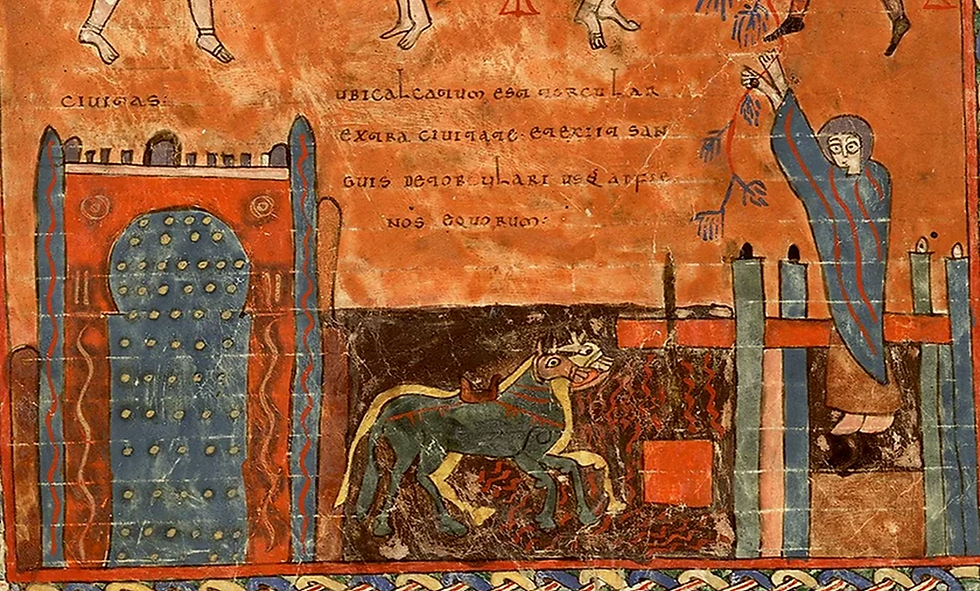 CIUITAS:
UBI CALCATUM EST TORCULAR
EXTRA CIUITATE· ET EXIIT SAN
GUIS DE TORCULARI USQ AD FRE
NOS EQUORUM: